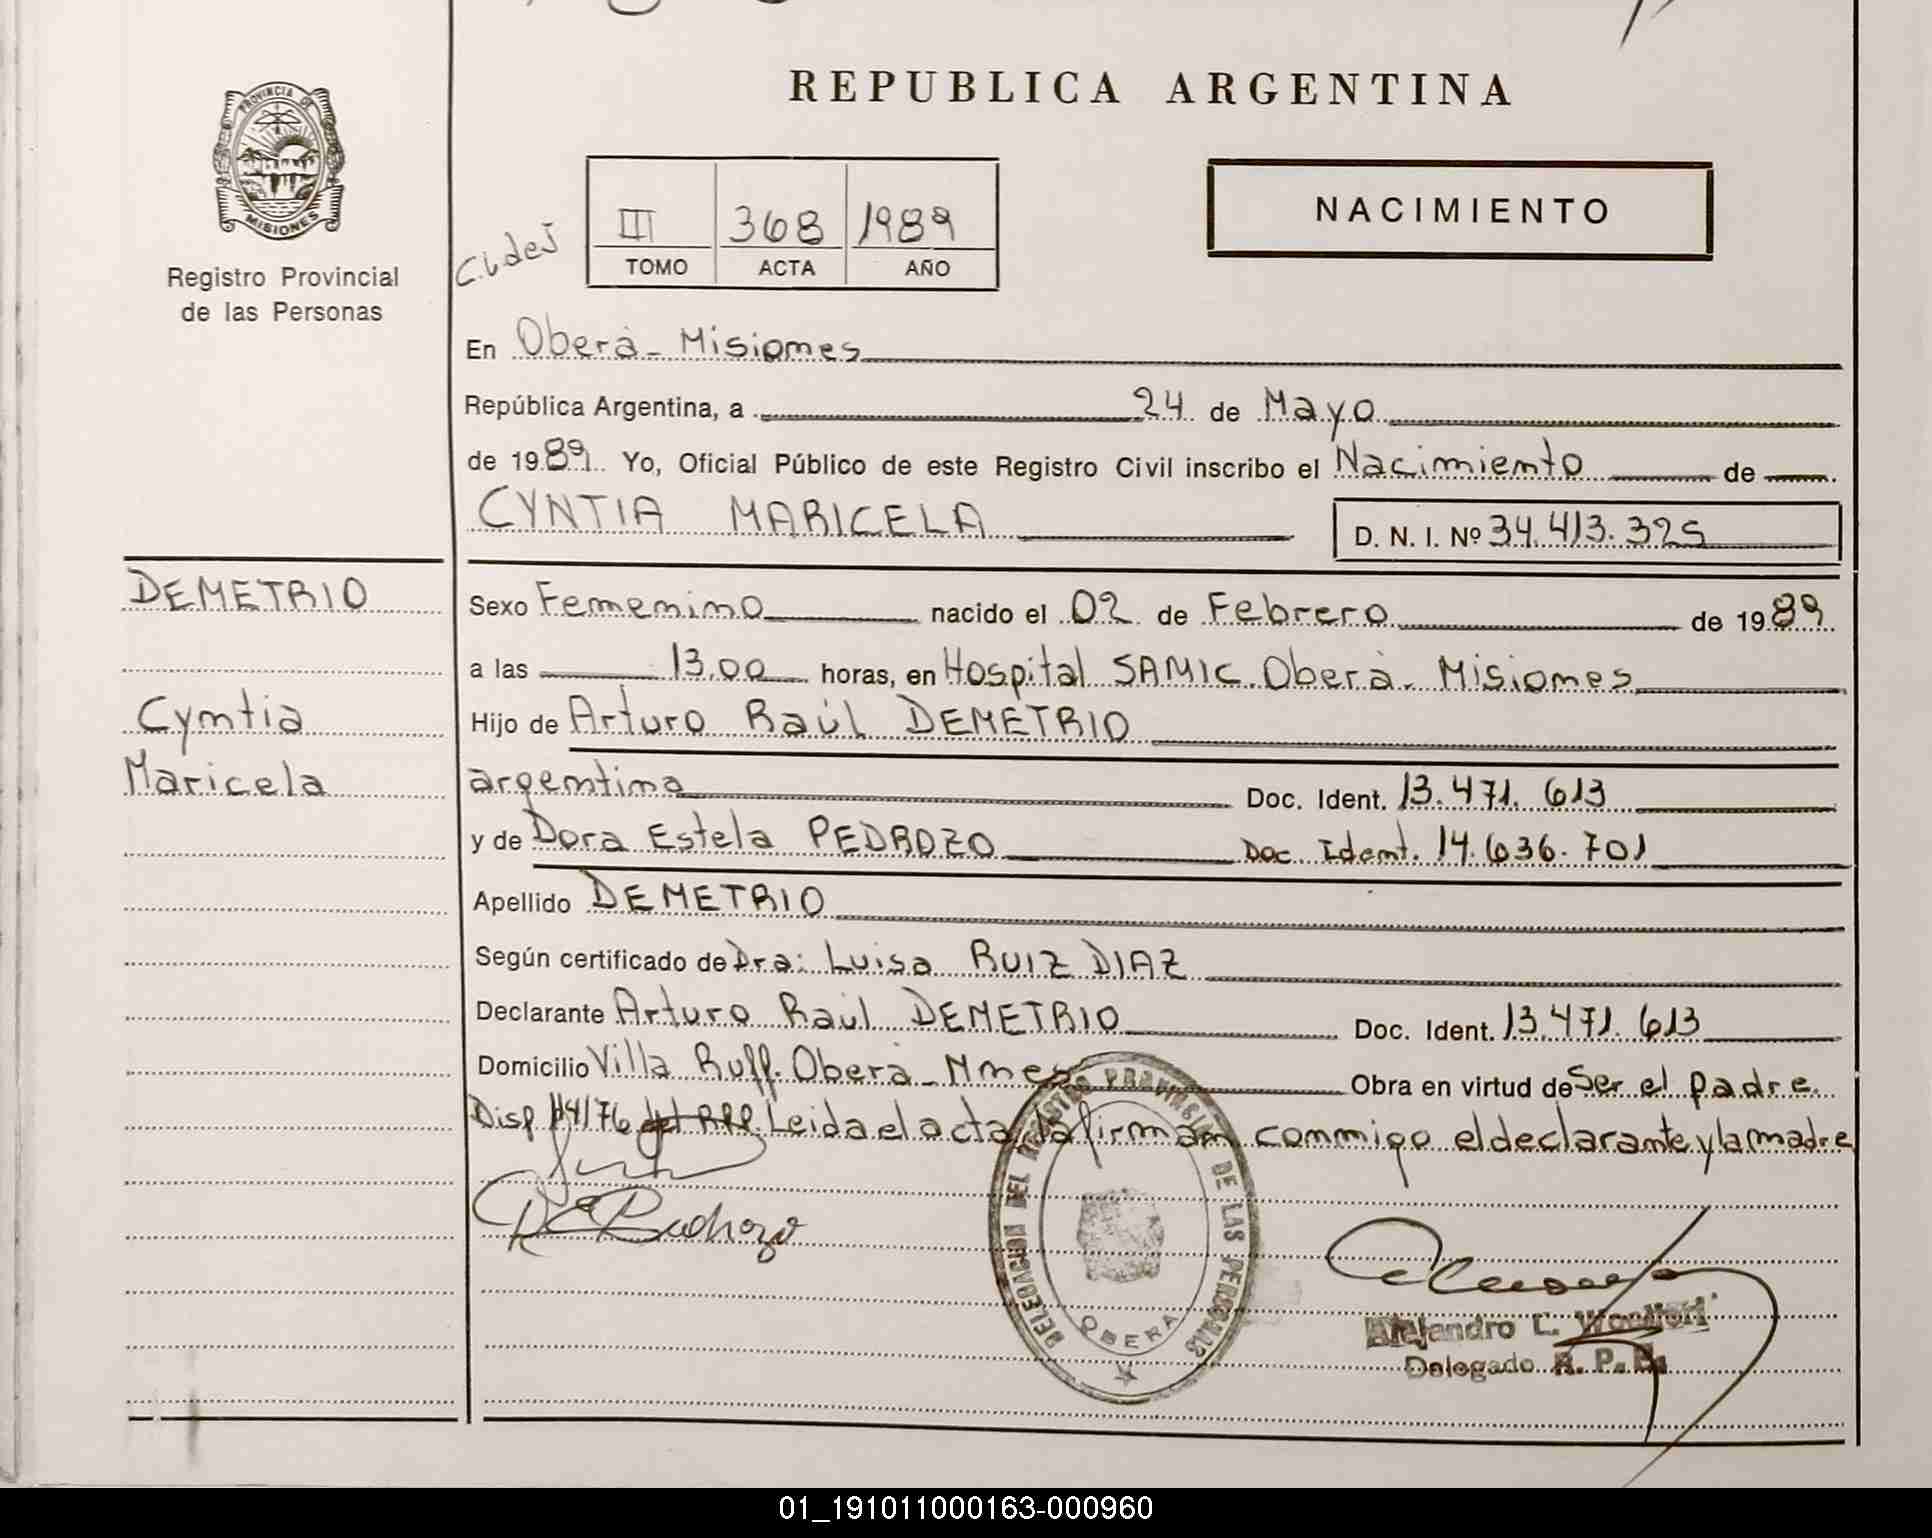 REPUBLICA ARGENTINA
PROVINCIA DE
MISIONES
Registro Provincial
de las Personas
III 368 1989
TOMO ACTA AÑO
NACIMIENTO
En Oberà - Misiones
República Argentina, a 24 de Mayo
de 1989. Yo, Oficial Público de este Registro Civil inscribo el Nacimiento de
CYNTIA MARICELA
D. N. I. Nº 34.413.325
DEMETRIO
Cyntia
Maricela
Sexo Femenino nacido el 02 de Febrero de 1989
a las 13,00 horas, en Hospital SAMIC. Oberà - Misiones
Hijo de Arturo Raúl DEMETRIO
argentina Doc. Ident. 13.471.613
y de Dora Estela PEDROZO Doc Ident. 14.636.701
Apellido DEMETRIO
Según certificado de Dra: Luisa RUIZ DIAZ
Declarante Arturo Raúl DEMETRIO Doc. Ident. 13.471.613
Domicilio Villa Ruff. Oberà - Mnes Obra en virtud de Ser el padre.
Disp 114/76 del RPP. Leida el acta, la firman conmigo el declarante y la madre
DELEGACION DEL REGISTRO PROVINCIAL DE LAS PERSONAS
OBERA
Alejandro C.
Delegado R. P. P.
01_191011000163-000960